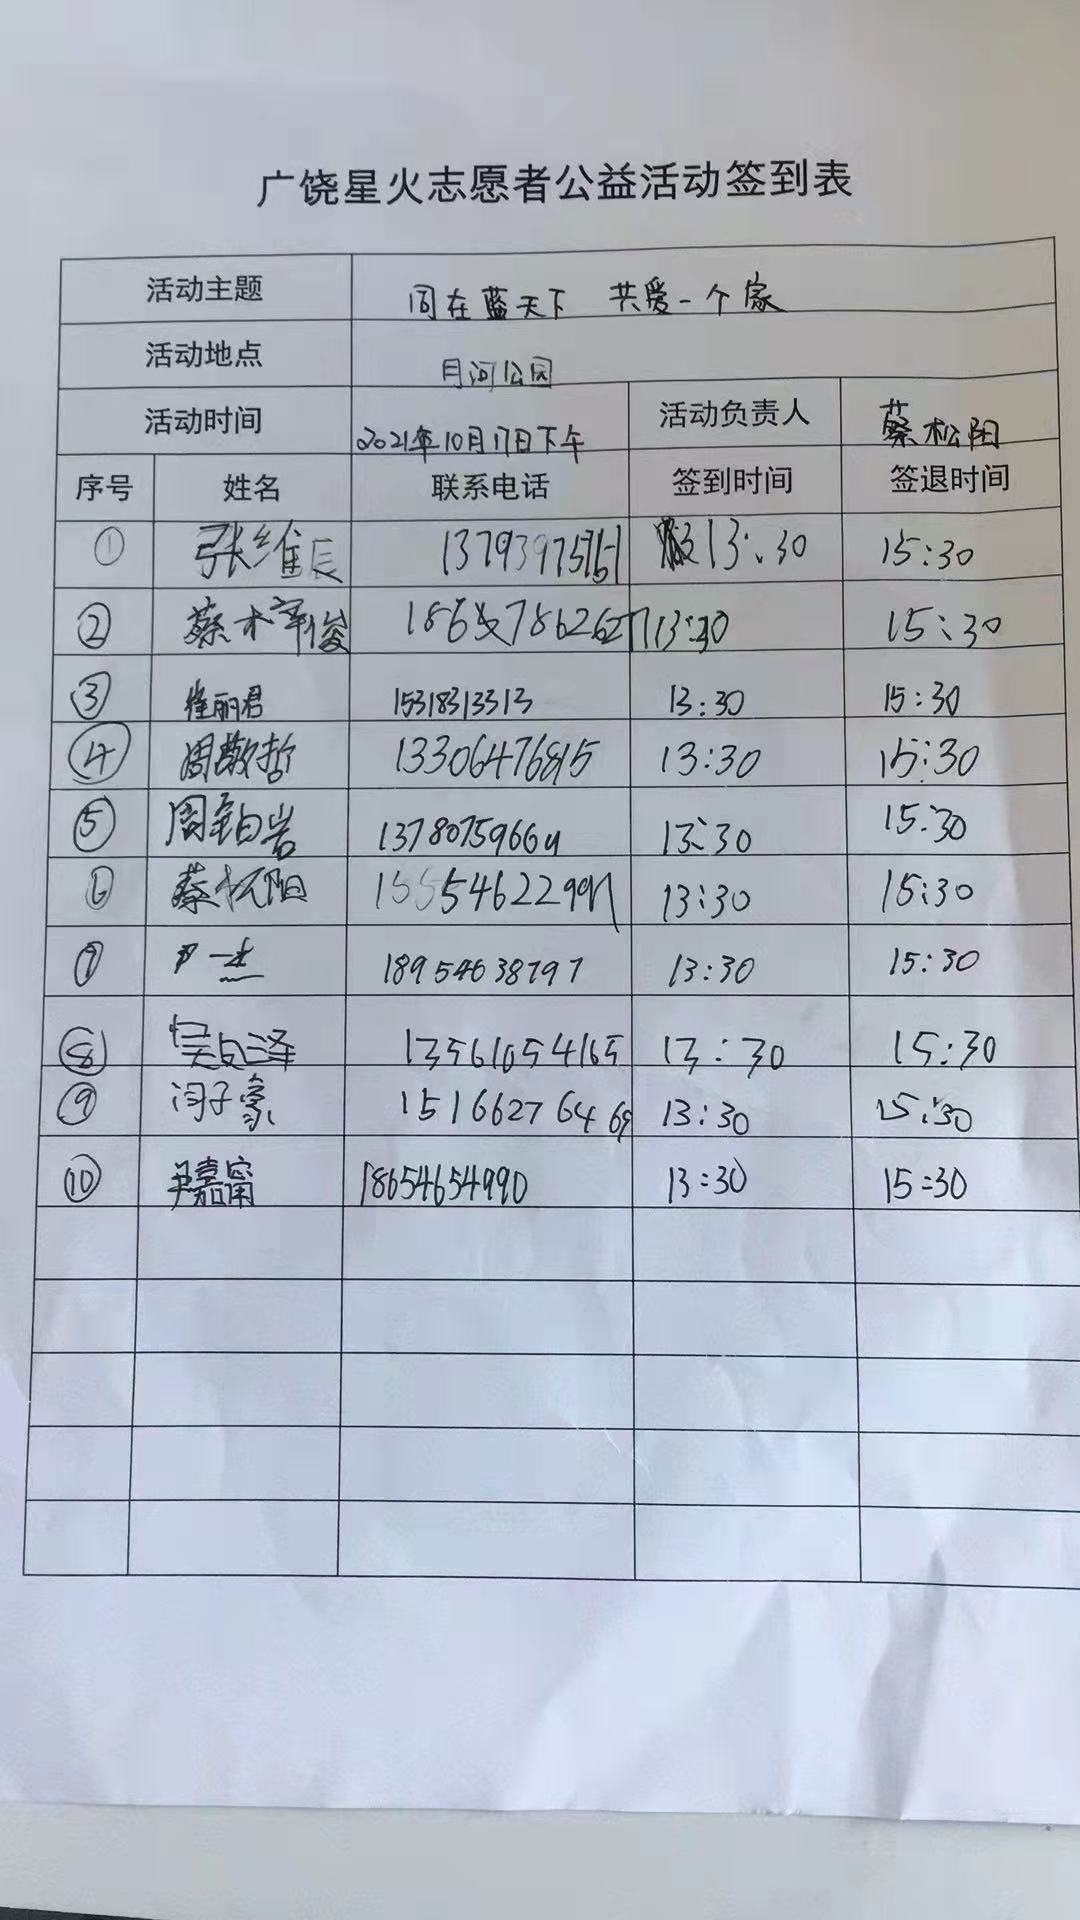 广饶星火志愿者公益活动签到表
活动主题 同在蓝天下 共爱一个家
活动地点 月河公园
活动时间 2021年10月17日下午 活动负责人 蔡松阳
序号 姓名 联系电话 签到时间 签退时间
① 张维辰 13:30 15:30
② 蔡 13:30 15:30
③ 崔丽君 15318313313 13:30 15:30
④ 周敬哲 13:30 15:30
⑤ 周铂岩 13:30 15:30
⑥ 蔡松阳 13:30 15:30
⑦ 尹一杰 18954638797 13:30 15:30
⑧ 吴白泽 13561054165 13:30 15:30
⑨ 闫子豪 15166276469 13:30 15:30
⑩ 尹嘉甯 18654654990 13:30 15:30